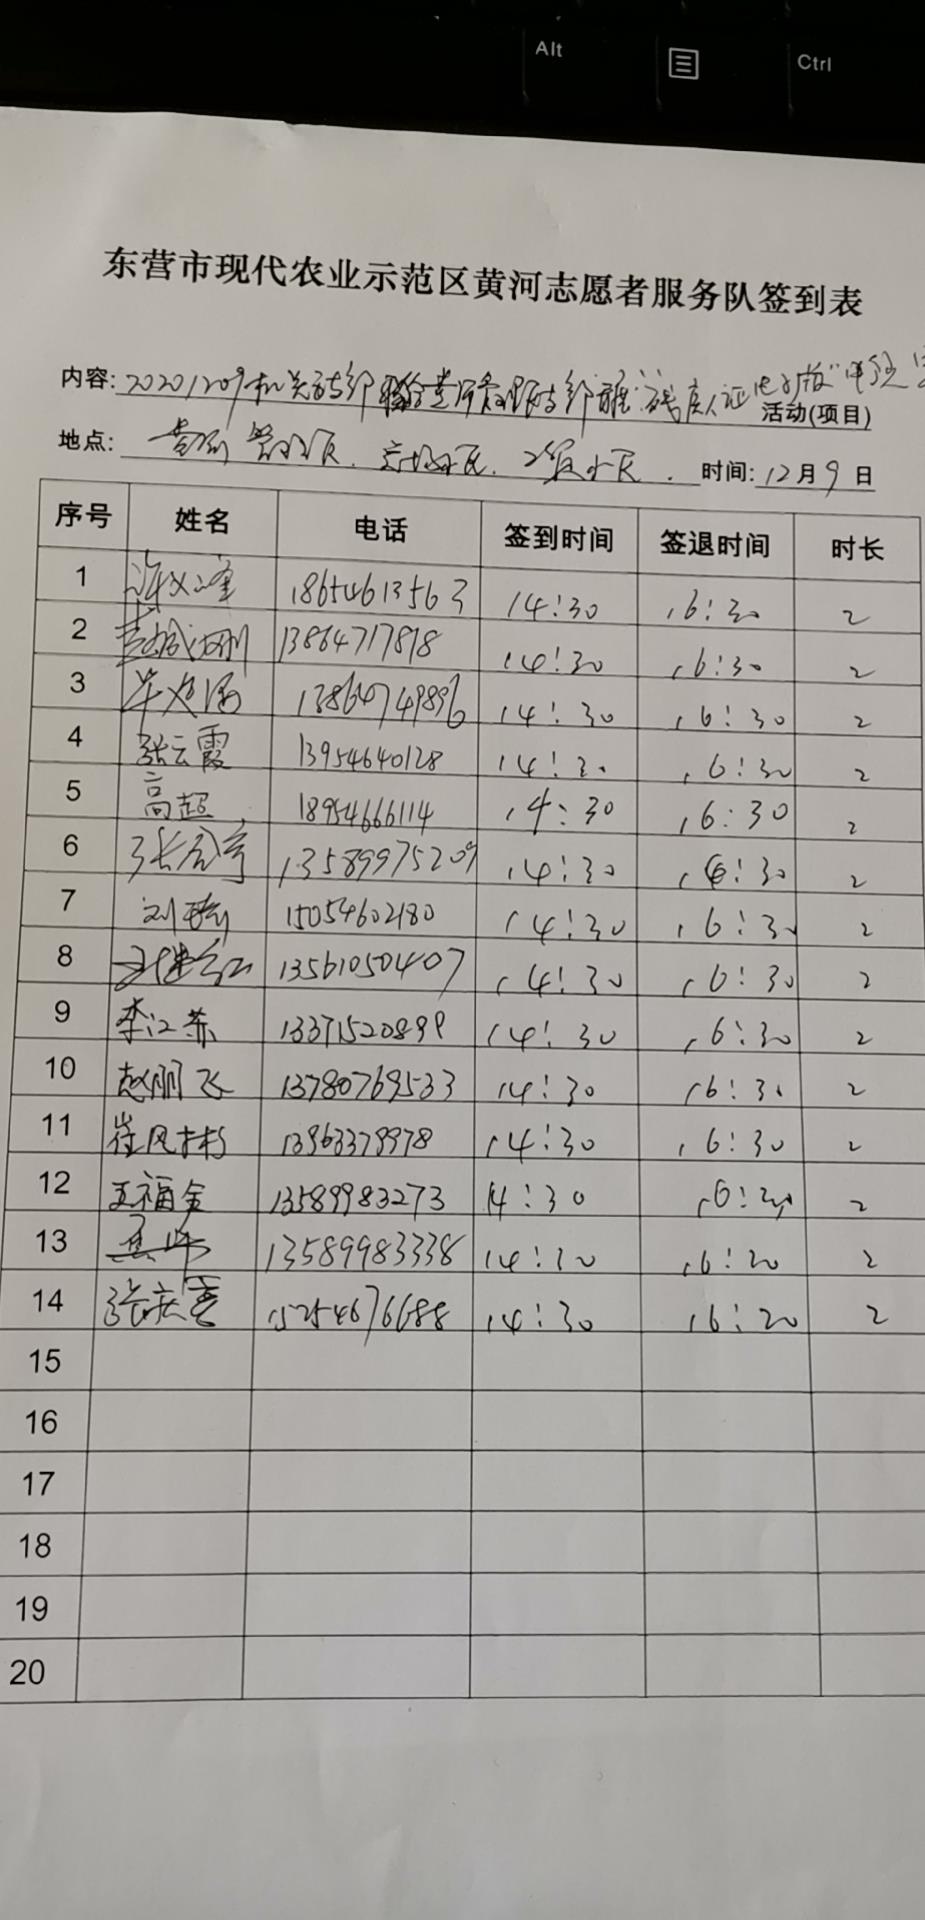 Alt
Ctrl
东营市现代农业示范区黄河志愿者服务队签到表
内容: 20201209机关支部 残疾人证电子版 活动(项目)
地点: 时间: 12月9日
序号 姓名 电话 签到时间 签退时间 时长
1 18654613563 14:30 16:30 2
2 13864717818 14:30 16:30 2
3 13864749896 14:30 16:30 2
4 张云霞 13954640128 14:30 16:30 2
5 高超 18954666114 14:30 16:30 2
6 13589975209 14:30 16:30 2
7 15054602180 14:30 16:30 2
8 13561050407 14:30 16:30 2
9 李江燕 13371520899 14:30 16:30 2
10 赵丽飞 13780769533 14:30 16:30 2
11 崔风村 13963379978 14:30 16:30 2
12 王福金 13589983273 14:30 16:30 2
13 13589983338 14:30 16:30 2
14 15254676688 14:30 16:30 2
15
16
17
18
19
20